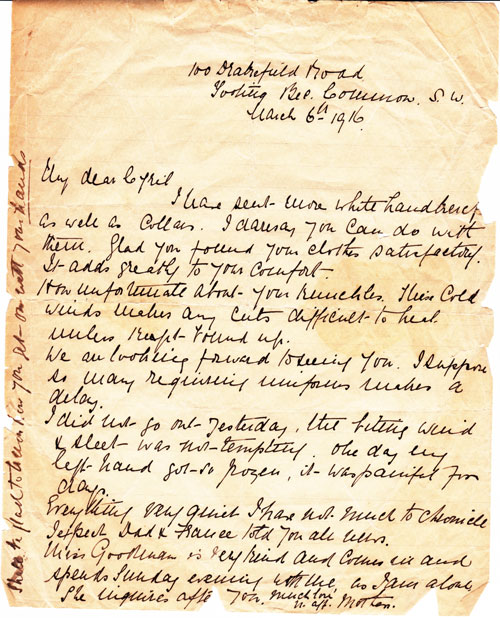 100 Drakefield Road
Tooting Bec. Common. S.W.
March 6th 1916.
My dear Cyril
I have sent more white handkerchf
as well as Collars. I daresay you can do with
them. Glad you found your clothes satisfactory.
It adds greatly to your comfort.
How unfortunate about your knuckles. This Cold
winds makes any cuts difficult to heal
unless kept bound up.
We are looking forward to seeing you. I suppose
so many requiring uniforms makes a
delay.
I did not go out yesterday, the biting wind
& sleet was not tempting. One day my
left hand got so frozen, it was painful for
days.
Everything very quiet I have not much to chronicle
I expect Dad & France told you all news.
Miss Goodman is very kind and comes in and
spends Sunday evening with me, as I am alone
She inquires after you. much love
yr. aff. Mother.
Shall be glad to hear how you get on with your hands